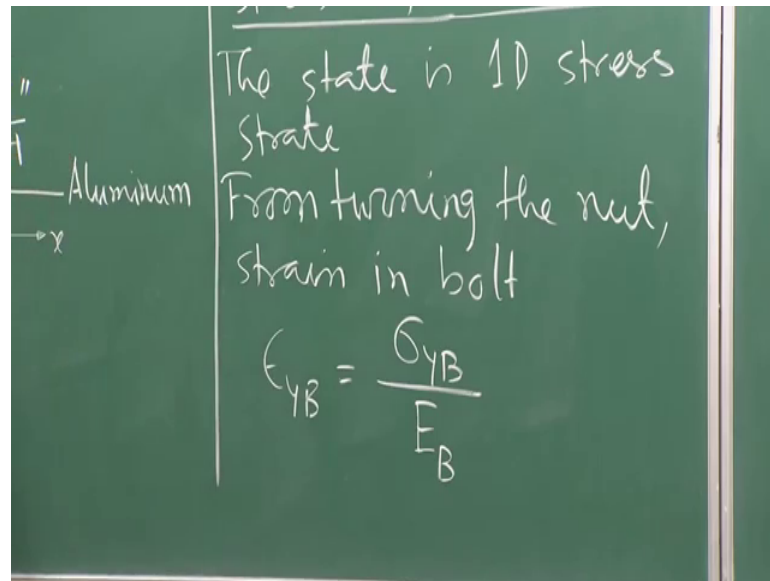 "
Aluminum
x
The state is 1D stress
strate
From turning the nut,
strain in bolt
ϵyB = σyB / EB